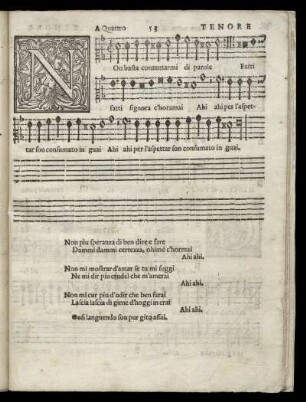 A Quattro 53 TENORE
N
On basta contentarmi di parole Fatti
fatti signora c'horamai Ahi ahi per l'aspet-
tar son consumato in guai Ahi ahi per l'aspettar son consumato in guai.
Non piu speranza di ben dire e fare
Dammi dammi certezza, ohimè c'hormai
Ahi ahi.
Non mi mostrar d'amar se tu mi foggi
Ne mi dir piu crudel che m'amerai
Ahi ahi.
Non mi cur piu d'odir che ben farai
Lascia lascia di gime d'hoggi in crai
Ahi ahi.
Così languendo son pur gito assai.